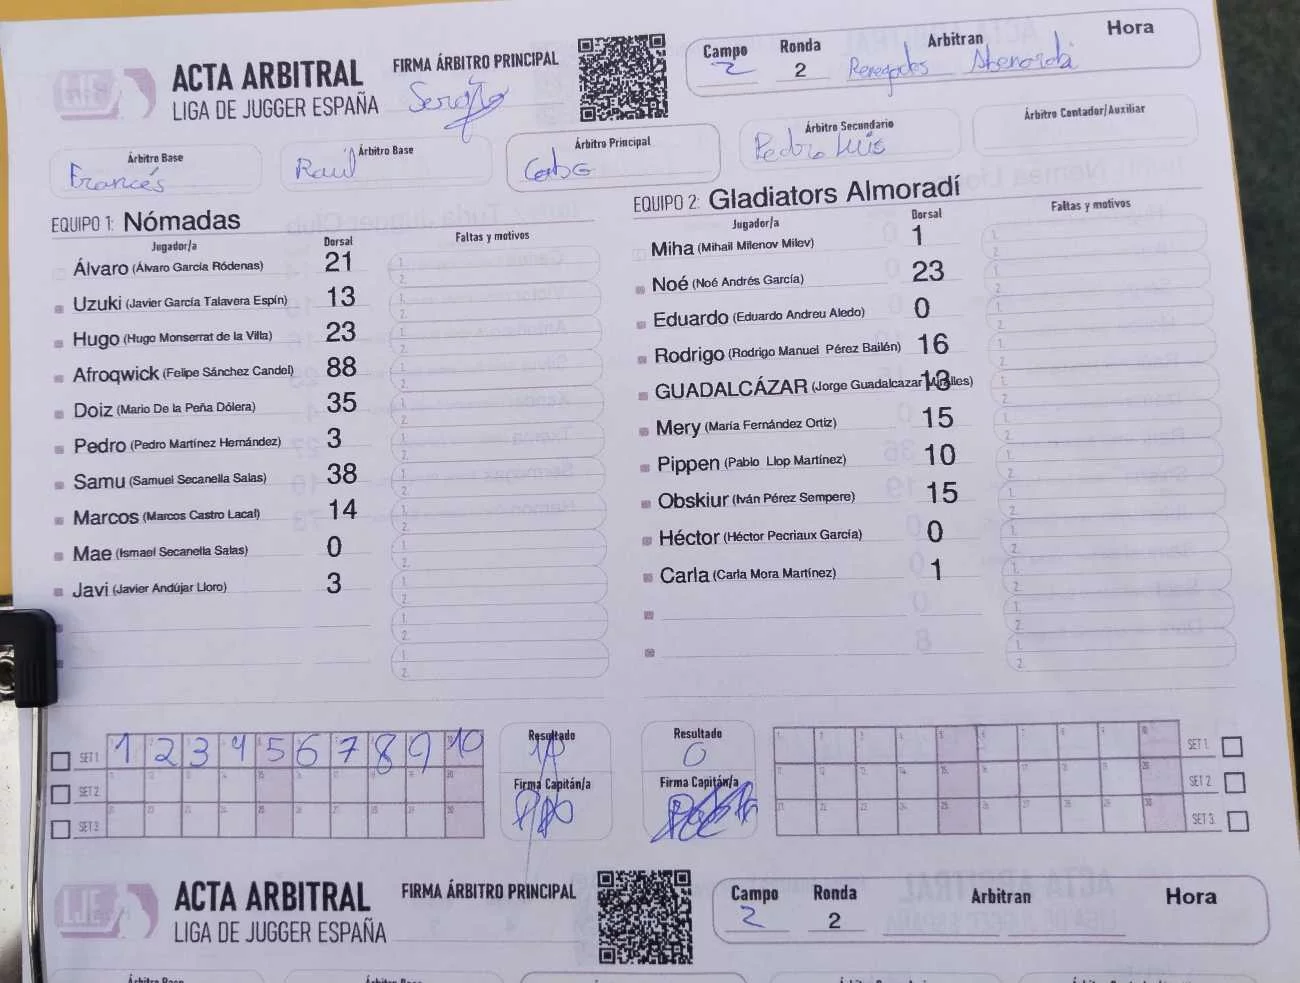 LJE
ACTA ARBITRAL
LIGA DE JUGGER ESPAÑA
FIRMA ÁRBITRO PRINCIPAL
Campo Ronda Arbitran Hora
2 2 Renegades
Árbitro Base
Francés
Árbitro Base
Raúl
Árbitro Principal
Árbitro Secundario
Pedro Luis
Árbitro Contador/Auxiliar
EQUIPO 1: Nómadas
Jugador/a Dorsal Faltas y motivos
Álvaro (Álvaro García Ródenas) 21
Uzuki (Javier García Talavera Espín) 13
Hugo (Hugo Monserrat de la Villa) 23
Afroqwick (Felipe Sánchez Candel) 88
Doiz (Mario De la Peña Dólera) 35
Pedro (Pedro Martínez Hernández) 3
Samu (Samuel Secanella Salas) 38
Marcos (Marcos Castro Lacal) 14
Mae (Ismael Secanella Salas) 0
Javi (Javier Andújar Lloro) 3
EQUIPO 2: Gladiators Almoradí
Jugador/a Dorsal Faltas y motivos
Miha (Mihail Milenov Milev) 1
Noé (Noé Andrés García) 23
Eduardo (Eduardo Andreu Aledo) 0
Rodrigo (Rodrigo Manuel Pérez Bailén) 16
GUADALCÁZAR (Jorge Guadalcazar Miralles) 13
Mery (María Fernández Ortiz) 15
Pippen (Pablo Llop Martínez) 10
Obskiur (Iván Pérez Sempere) 15
Héctor (Héctor Pecriaux García) 0
Carla (Carla Mora Martínez) 1
SET 1 1 2 3 4 5 6 7 8 9 10
SET 2
SET 3
Resultado
10
Firma Capitán/a
Resultado
0
Firma Capitán/a
SET 1
SET 2
SET 3
LJE
ACTA ARBITRAL
LIGA DE JUGGER ESPAÑA
FIRMA ÁRBITRO PRINCIPAL
Campo Ronda Arbitran Hora
2 2
Árbitro Base
Árbitro Base